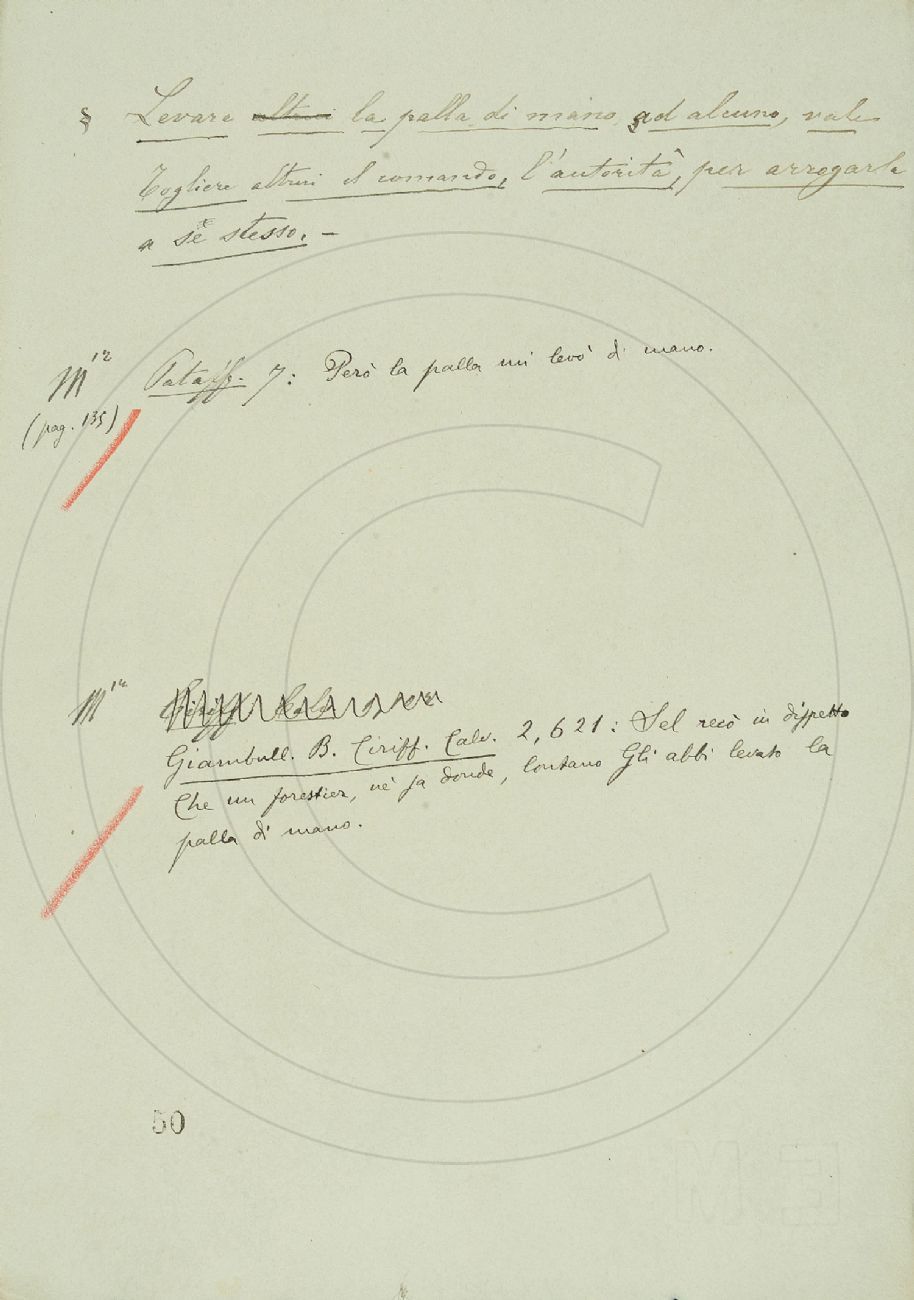 § Levare altrui la palla di mano ad alcuno, vale
Togliere altrui il comando, l'autorità, per arrogarla
a sè stesso. –
M
(pag. 135) Pataff. 7: Però la palla mi levò di mano.
M
Giambull. B. Ciriff. Calv. 2, 621: Sel recò in dispetto
Che un forestier, nè sa donde, lontano Gli abbi levato la
palla di mano.
50